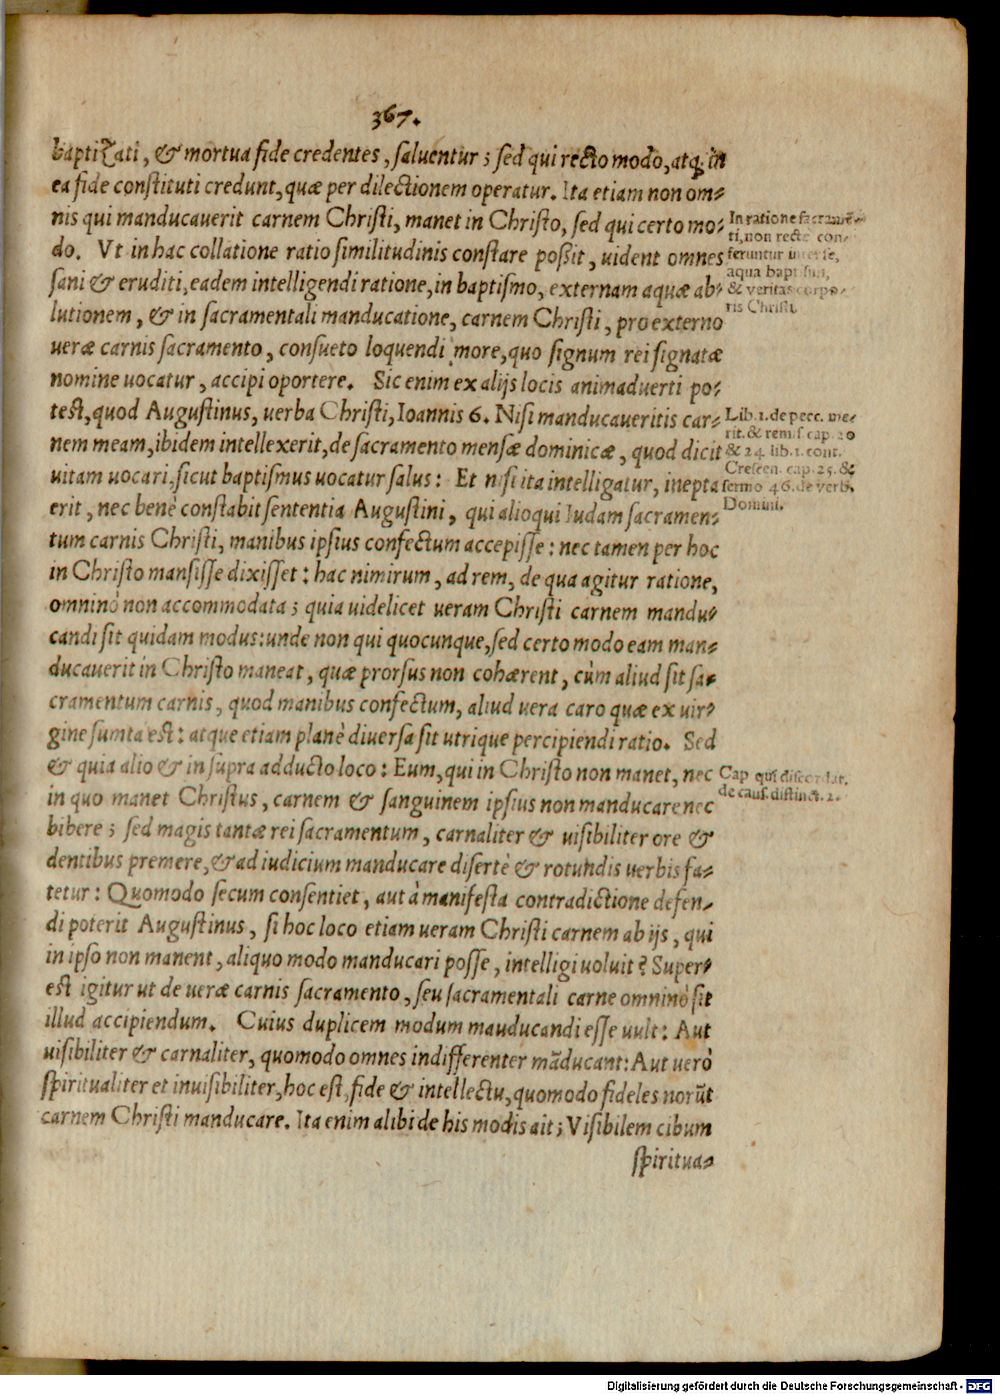 367.
baptizati, & mortua fide credentes, saluentur; sed qui recto modo, atq; in
ea fide constituti credunt, quæ per dilectionem operatur. Ita etiam non om-
nis qui manducauerit carnem Christi, manet in Christo, sed qui certo mo-
do. Vt in hac collatione ratio similitudinis constare possit, uident omnes
sani & eruditi, eadem intelligendi ratione, in baptismo, externam aquæ ab-
lutionem, & in sacramentali manducatione, carnem Christi, pro externo
ueræ carnis sacramento, consueto loquendi more, quo signum rei signatæ
nomine uocatur, accipi oportere. Sic enim ex alijs locis animaduerti po-
test, quod Augustinus, uerba Christi, Ioannis 6. Nisi manducaueritis car-
nem meam, ibidem intellexerit, de sacramento mensæ dominicæ, quod dicit
uitam uocari, sicut baptismus uocatur salus: Et nisi ita intelligatur, inepta
erit, nec benè constabit sententia Augustini, qui alioqui Iudam sacramen-
tum carnis Christi, manibus ipsius confectum accepisse: nec tamen per hoc
in Christo mansisse dixisset: hac nimirum, ad rem, de qua agitur ratione,
omninò non accommodata; quia uidelicet ueram Christi carnem mandu-
candi sit quidam modus: unde non qui quocunque, sed certo modo eam man-
ducauerit in Christo maneat, quæ prorsus non cohærent, cùm aliud sit sa-
cramentum carnis, quod manibus confectum, aliud uera caro quæ ex uir-
gine sumta est: atque etiam planè diuersa sit utrique percipiendi ratio. Sed
& quia alio & in supra adducto loco: Eum, qui in Christo non manet, nec
in quo manet Christus, carnem & sanguinem ipsius non manducare nec
bibere; sed magis tantæ rei sacramentum, carnaliter & uisibiliter ore &
dentibus premere, & ad iudicium manducare disertè & rotundis uerbis fa-
tetur: Quomodo secum consentiet, aut à manifesta contradictione defen-
di poterit Augustinus, si hoc loco etiam ueram Christi carnem ab ijs, qui
in ipso non manent, aliquo modo manducari posse, intelligi uoluit? Super-
est igitur ut de ueræ carnis sacramento, seu sacramentali carne omninò sit
illud accipiendum. Cuius duplicem modum mauducandi esse uult: Aut
uisibiliter & carnaliter, quomodo omnes indifferenter māducant: Aut uerò
spiritualiter et inuisibiliter, hoc est, fide & intellectu, quomodo fideles norūt
carnem Christi manducare. Ita enim alibi de his modis ait; Visibilem cibum
spiritua-
In ratione sacramē-
ti, non rectè con-
feruntur inter se,
aqua baptismi,
& veritas corpo-
ris Christi.
Lib. 1. de pecc. me-
rit. & remis. cap. 20
& 24. lib. 1. cont.
Crescen. cap. 25. &
sermo 46. de verb.
Domini.
Cap. qui discordat.
de caus. distinct. 2.
Digitalisierung gefördert durch die Deutsche Forschungsgemeinschaft - DFG